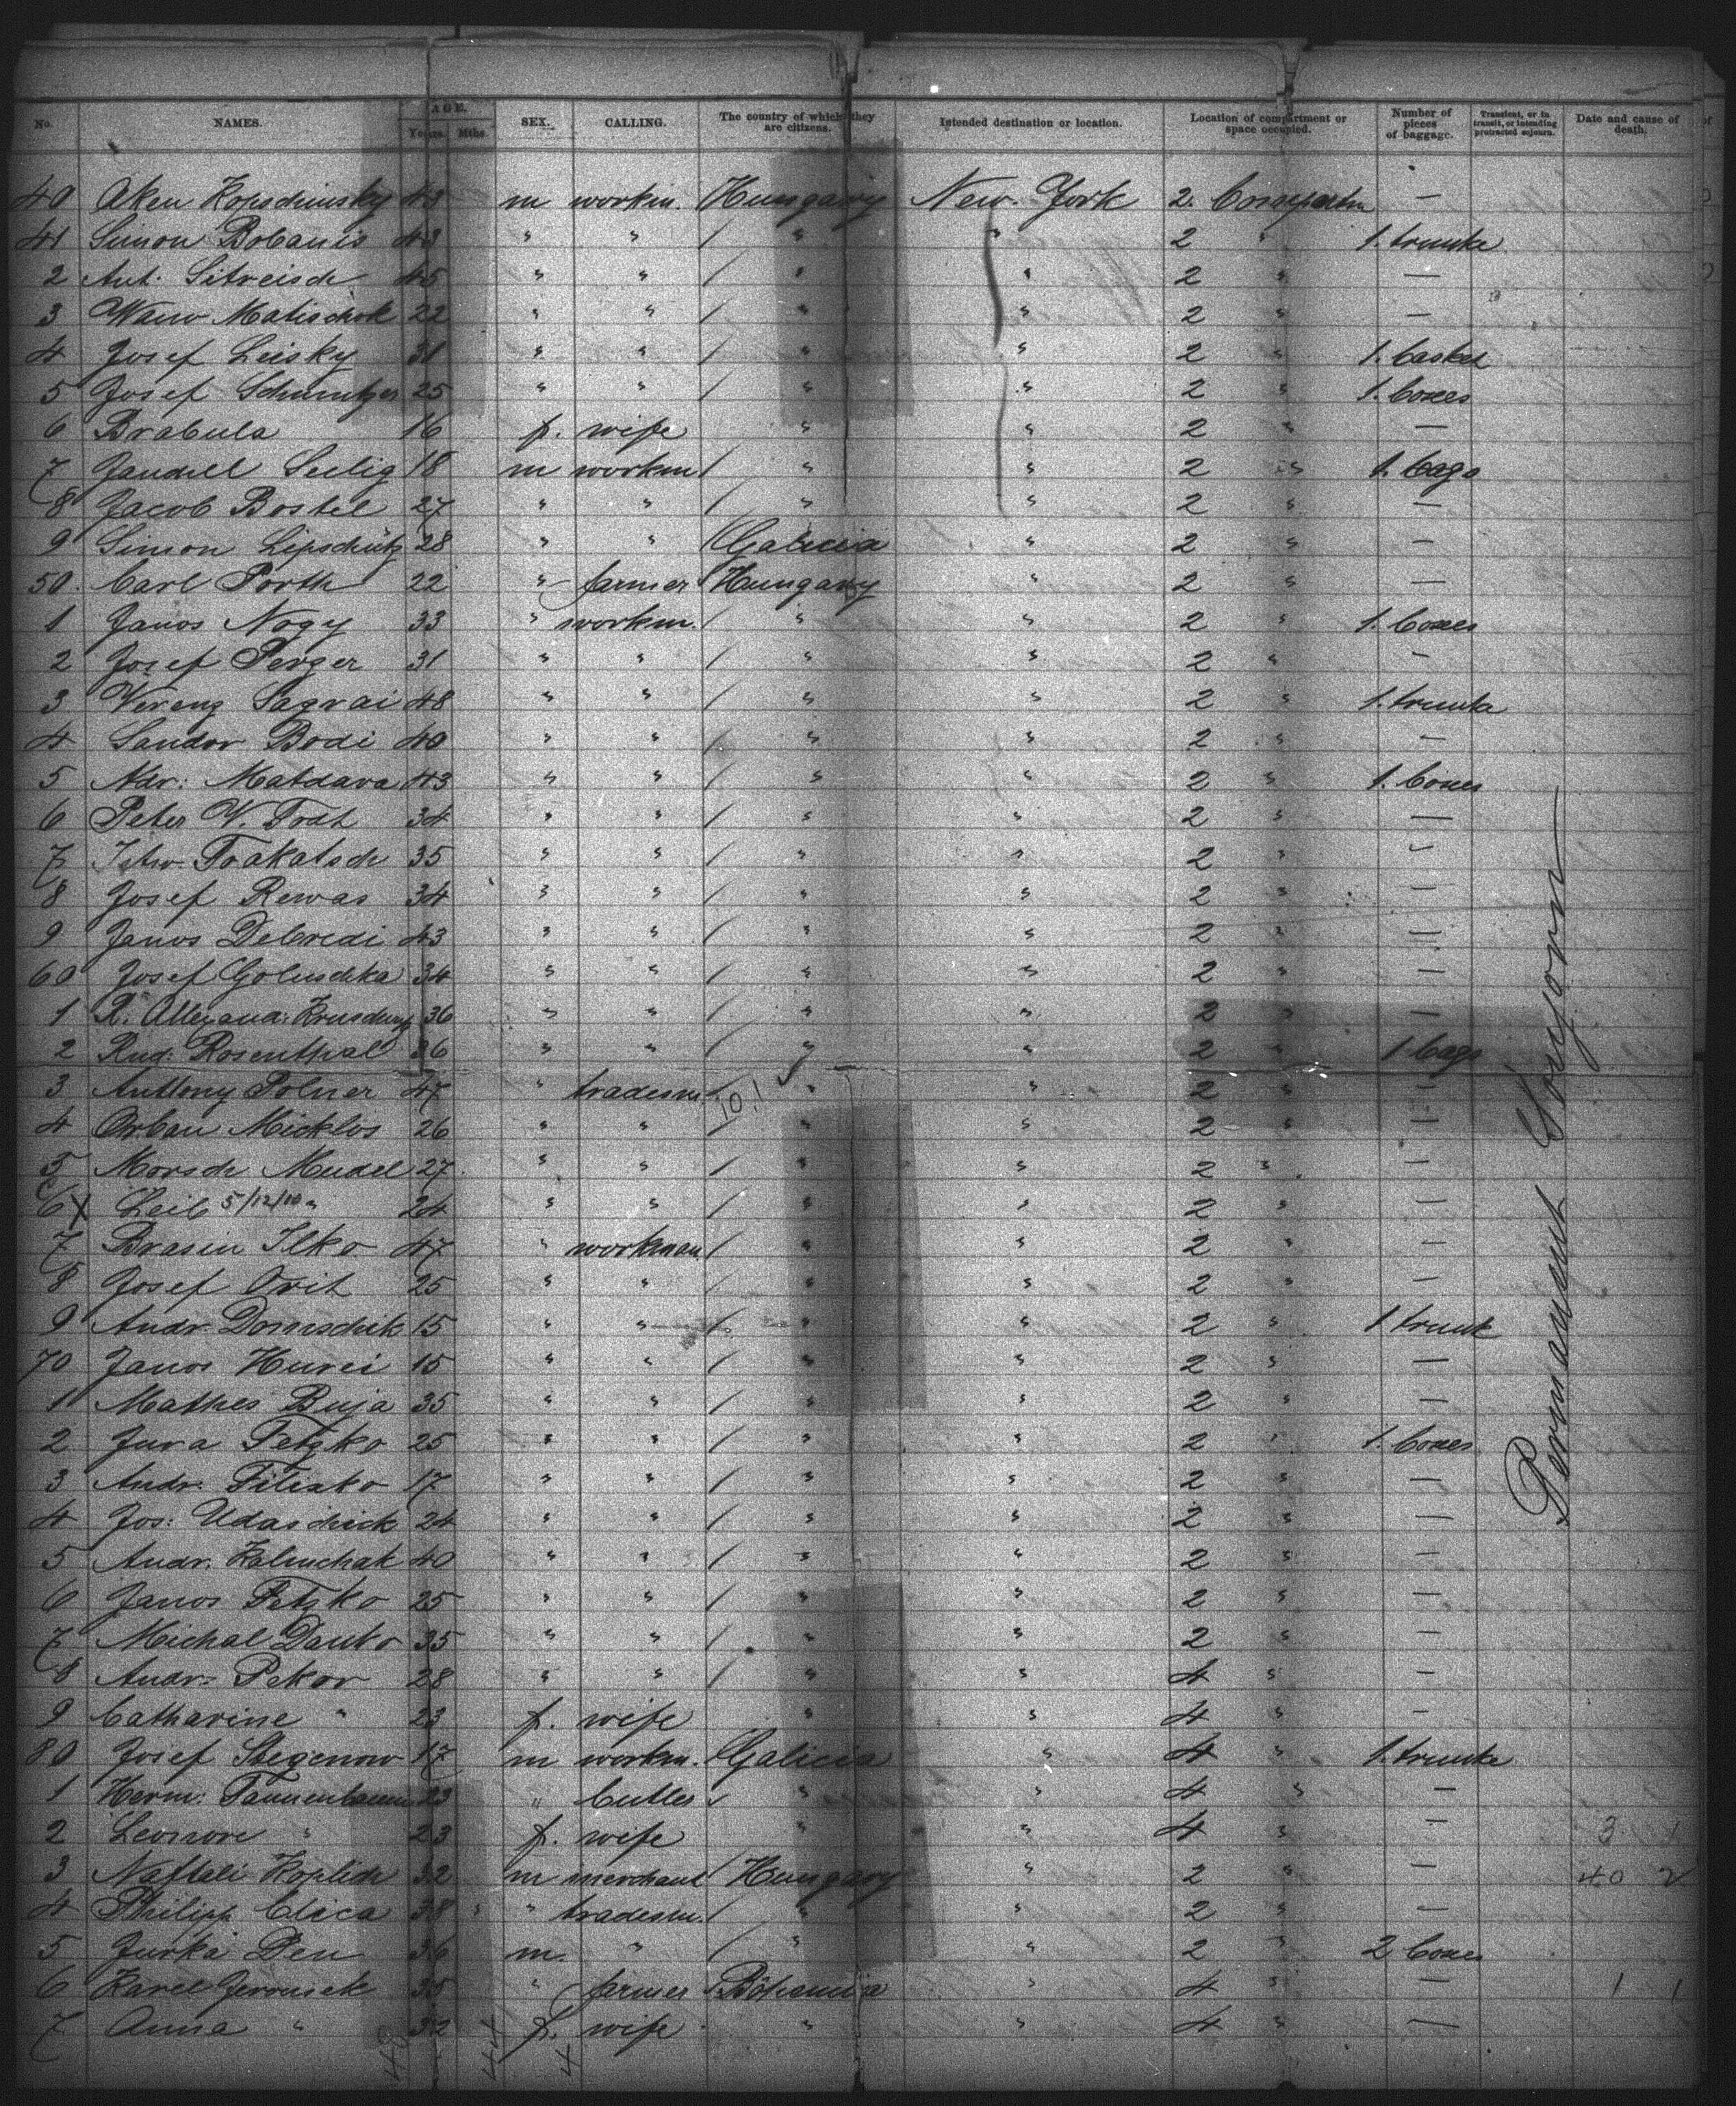 No. NAMES. AGE. Years. Mths. SEX. CALLING. The country of which they are citizens. Intended destination or location. Location of compartment or space occupied. Number of pieces of baggage. Transient, or in transit, or intending protracted sojourn. Date and cause of death.
40 Aken Kopschinsky 43 m workm. Hungary New-York 2. Compartm —
41 Simon Bobanis 43 " " / " " 2 " 1. trunke
2 Ant. Sitreisch 45 " " / " " 2 " —
3 Wasw Matischok 22 " " / " " 2 " —
4 Josef Leisky 31 " " / " " 2 " 1. basket
5 Josef Schmitzer 25 " " / " " 2 " 1. boxes
6 Brabula 16 f. wife " " 2 " —
7 Jandell Seilig 18 m workm / " " 2 " 1. bags
8 Jacob Bostel 27 " " / " " 2 " —
9 Simon Lipschütz 28 " " / Galicia " 2 " —
50. Carl Porth 22 " farmer / Hungary " 2 " —
1 Janos Nogy 33 " workm. / " " 2 " 1. boxes
2 Josef Perger 31 " " / " " 2 " —
3 Verenz Sagrai 48 " " / " " 2 " 1. trunk
4 Sandor Bodi 40 " " / " " 2 " —
5 Adr: Matdava 43 " " / " " 2 " 1. boxes
6 Peter V. Todt 34 " " / " " 2 " —
7 Toakatsch 35 " " / " " 2 " —
8 Josef Rewas 34 " " / " " 2 " —
9 Janos Debredi 43 " " / " " 2 " —
60 Josef Goluschka 34 " " / " " 2 " —
1 36 " " / " " 2 " —
2 Rud: Rosenthal 36 " " / " " 2 " 1 bags
3 Anttony Polner 47 " tradesm. / 10.1 " " 2 " —
4 Orban Micklos 26 " " / " " 2 " —
5 Morsch Mendel 27 " " / " " 2 " —
6 X Leib 5/12/10 " 24 " " / " " 2 " —
7 Brasin Ilko 47 " workman / " " 2 " —
8 Josef Orit 25 " " / " " 2 " —
9 Andr. Domschik 15 " " / " " 2 " 1 trunk
70 Janos Hurei 15 " " / " " 2 " —
1 Mathes Buja 35 " " / " " 2 " —
2 Jura Fetzko 25 " " / " " 2 " 1. boxes
3 Andr. Filisko 17 " " / " " 2 " —
4 Jos: Udaschick 24 " " / " " 2 " —
5 Andr. Kalinchak 40 " " / " " 2 " —
6 Janos Fetzko 25 " " / " " 2 " —
7 Michal Danko 35 " " / " " 2 " —
8 Andr. Pekar 28 " " / " " 4 " —
9 Catharine " 23 f. wife " " 4 " —
80 Josef Stegenow 17 m workm. / Galicia " 4 " 1. trunke
1 Herm: Tannenbaum 23 " Cutler / " " 4 " —
2 Leonore " 23 f. wife " " 4 " — 3 1
3 Naftali Koplich 32 m merchant / Hungary " 2 " — 40 2
4 Philipp Clica 38 " " tradesm. / " " 2 " —
5 Jurka Den 36 m. " / " " 2 " 2 boxes
6 Karel Jeronsek 35 " farmer / Bohemia " 4 " — 1 1
7 Anna " 32 f. wife " " 4 " —
48 44 4
Permanent Sonjourn